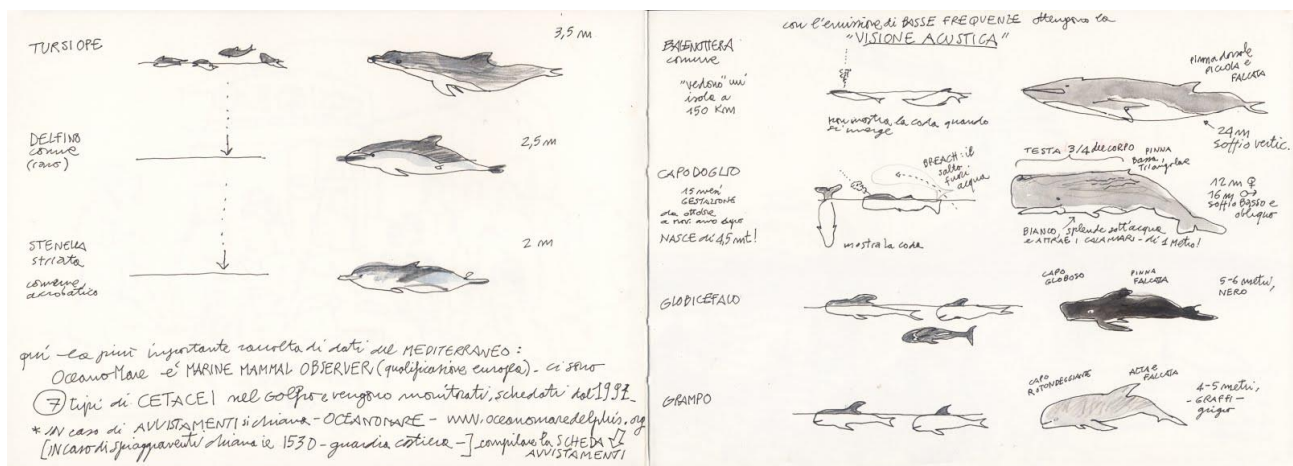 TURSIOPE
3,5 m
DELFINO
comune
(raro)
2,5 m
STENELLA
striata
comune
acrobatico
2 m
qui la più importante raccolta di dati del MEDITERRANEO:
OceanoMare è MARINE MAMMAL OBSERVER (qualificazione europea) - ci sono
7 tipi di CETACEI nel Golfo e vengono monitorati, schedati dal 1991
* IN caso di AVVISTAMENTI si chiama - OCEANOMARE - www.oceanomaredelphis.org
[IN caso di spiaggiamenti chiama il 1530 - guardia costiera -] compilare la SCHEDA
AVVISTAMENTI
con l'emissione di BASSE FREQUENZE ottengono la
"VISIONE ACUSTICA"
BALENOTTERA
comune
"vedono" un'
isola a
150 Km
non mostra la coda quando
si immerge
pinna dorsale
PICCOLA e
FALCATA
24 m
soffio vertic.
CAPODOGLIO
15 mesi
GESTAZIONE
da ottobre
a nov. anno dopo
NASCE di 4,5 mt!
mostra la coda
BREACH: il
salto
fuori
acqua
TESTA 3/4 del CORPO
PINNA
Bassa,
Triangolare
12 m ♀
16 m ♂
soffio BASSO e
obliquo
BIANCO, splende sott'acqua
e ATTIRA I CALAMARI - di 1 Metro!
GLOBICEFALO
CAPO
GLOBOSO
PINNA
FALCATA
5-6 metri,
NERO
GRAMPO
CAPO
ROTONDEGGIANTE
ALTA e
FALCATA
4-5 metri,
- GRAFFI -
grigio